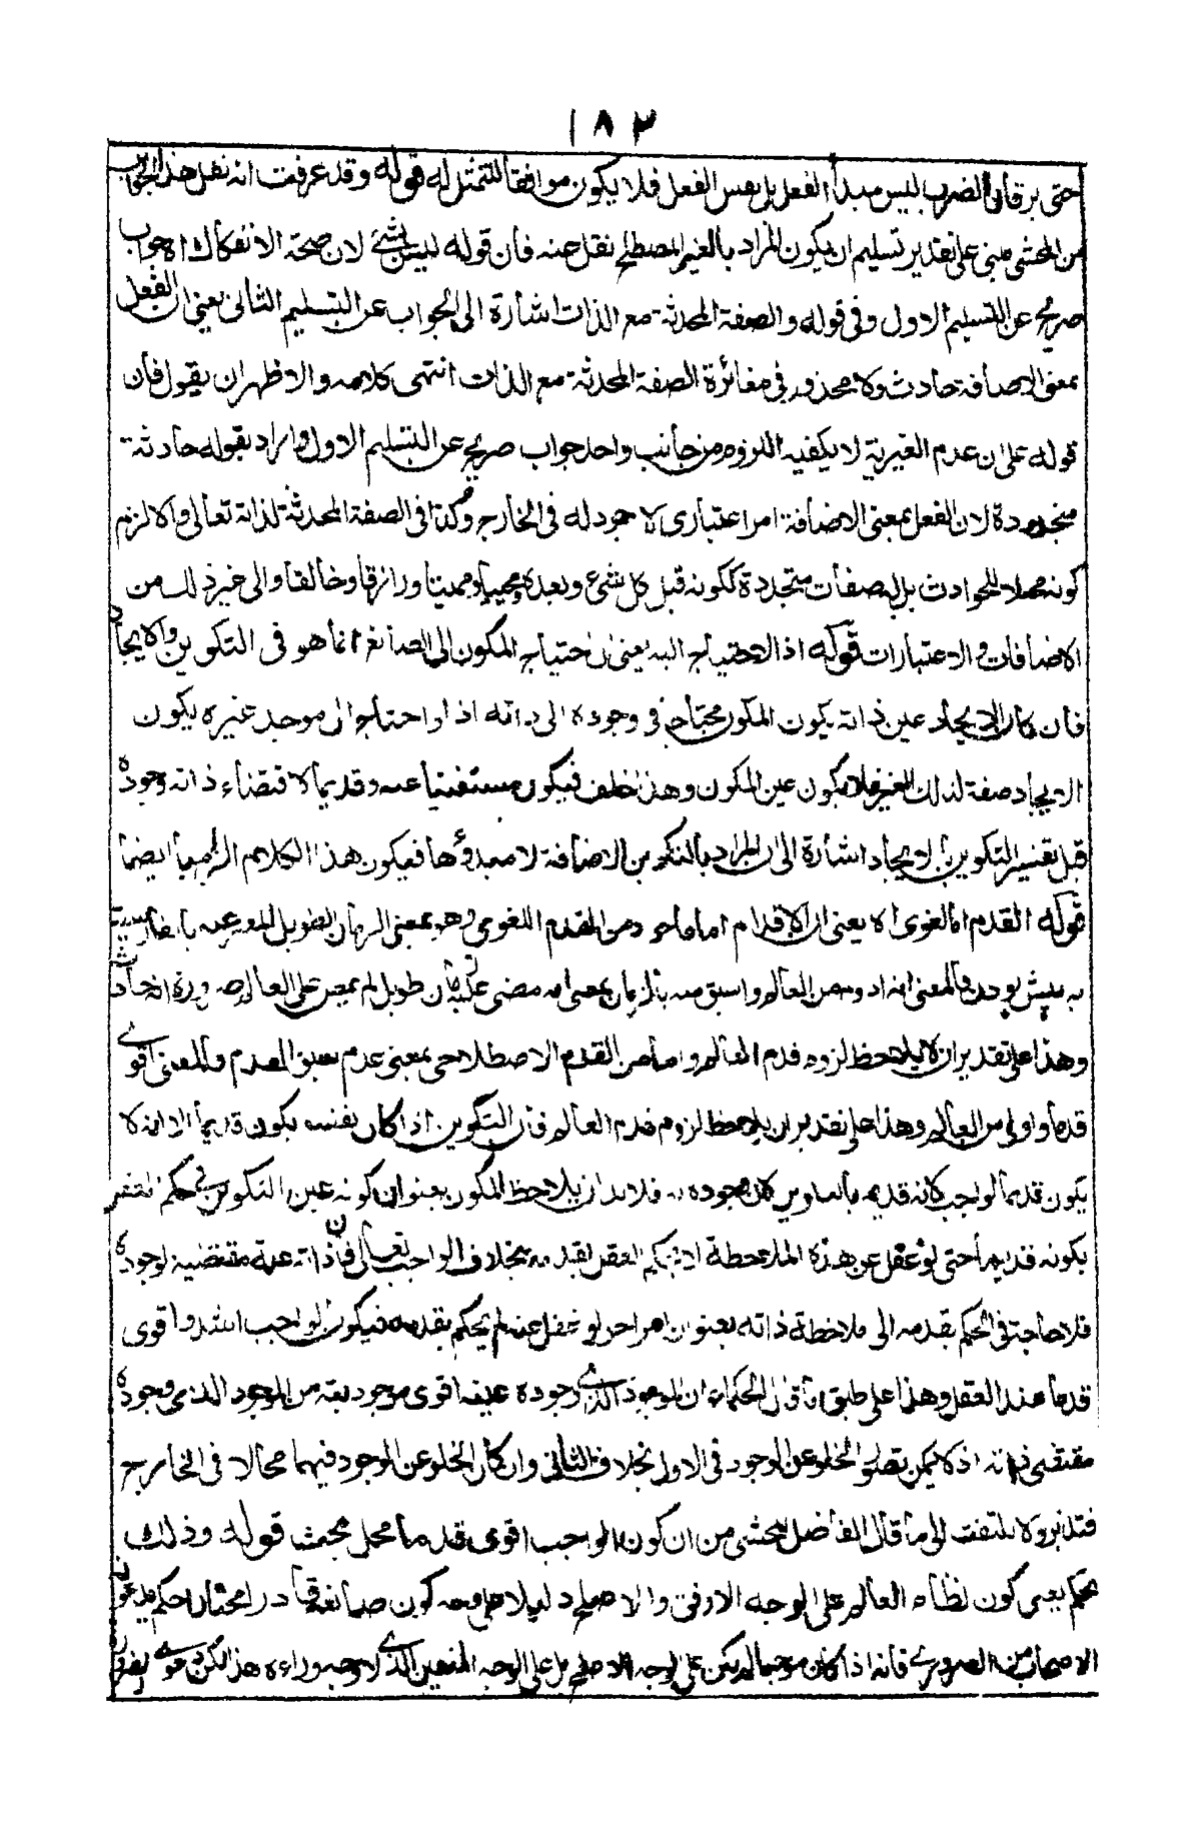 ١٨٣
حتى يرد ان الضرب ليس مبدأ الفعل بل نفس الفعل فلا يكون موافقا للتمثل له قوله وقد عرفت انه نقل هذا الجواب
من المحشى مبنى على تقدير تسليم ان يكون المراد بالغير المصطلح نقل عنه فان قوله ليس بشئ لان صحة الانفكاك اه جواب
صريح عن التسليم الاول وفى قوله والصفة المحدثة مع الذات اشارة الى الجواب عن التسليم الثانى يعنى ان الفعل
بمعنى الاضافة حادث ولا محذور فى مغائرة الصفة المحدثة مع الذات انتهى كلامه والاظهر ان يقول فان
قوله على ان عدم الغيرية لا يكفيه اللزوم من جانب واحد جواب صريح عن التسليم الاول واراد بقوله حادثة
متجددة لان الفعل بمعنى الاضافة امر اعتبارى لا وجود له فى الخارج وكذا فى الصفة المحدثة لذاته تعالى والا لزم
كونه محلا للحوادث بل له صفات متجددة ككونه قبل كل شئ وبعده ومحييا ومميتا ورازقا وخالقا والى غير ذلك من
الاضافات والاعتبارات قوله اذ الاحتياج اليه يعنى ان احتياج المكون الى الصانع انما هو فى التكوين والايجاد
فان كان الايجاد عين ذاته يكون المكون محتاجا فى وجوده الى ذاته اذ لو احتاج الى موجد غيره يكون
الايجاد صفة لذلك الغير فلا يكون عين المكون وهذا خلف فيكون مستغنيا عنه وقديما لاقتضاء ذاته وجوده
قيل تفسير التكوين بالايجاد اشارة الى ان المراد بالتكوين الاضافة لا مبدؤها فيكون هذا الكلام الزاميا ايضا
قوله القدم اما لغوى اه يعنى ان الاقدم اما ماخوذ من القدم اللغوى وهو بمعنى الزمان الطويل المعبر عنه بالفارسية
به پيش بودن فالمعنى انه ادوم من العالم واسبق منه بالزمان بمعنى انه مضى عليه زمان طويل لم يمض على العالم ضرورة انه حادث
وهذا على تقدير ان لا يلاحظ لزوم قدم العالم واما من القدم الاصطلاحى بمعنى عدم سبق العدم فالمعنى اقوى
قدما واولى من العالم وهذا على تقدير ان يلاحظ لزوم قدم العالم فان التكوين اذا كان بنفسه يكون قديما الا انه لا
يكون قديما كالواجب لانه قديم بالتكوين كان وجوده به فلا بد ان يلاحظ المكون بعنوان كونه عين التكوين حتى يحكم العقل
بكونه قديما حتى لو غفل عن هذه الملاحظة لا يحكم العقل بقدمه بخلاف الواجب تعالى فان ذاته علة مقتضية لوجوده
فلا حاجة فى الحكم بقدمه الى ملاحظة ذاته بعنوان امر اخر لو غفل عنه لم يحكم بقدمه فيكون الواجب اشد واقوى
قدما عند العقل وهذا على طبق ما قال الحكماء ان الموجود الذى وجوده عينه اقوى موجودية من الموجود الذى وجوده
مقتضى ذاته اذ لا يمكن تصور الخلو عن الوجود فى الاول بخلاف الثانى وان كان الخلو عن الوجود فيهما محالا فى الخارج
فتدبر ولا تلتفت الى ما قال الفاضل المحشى من ان كون الواجب اقوى قدما محل بحث قوله وذلك
حكم يعنى كون نظام العالم على الوجه الاوفق والاصلح دليلا على كون صانعه قادرا مختارا حكم يدعون
الاصحاب فيه الضرورى فانه اذا كان موجبا لم يكن على الوجه الاصلح بل على الوجه المتعين الذى لا وجه وراءه هذا لكن دعوى الضرورة